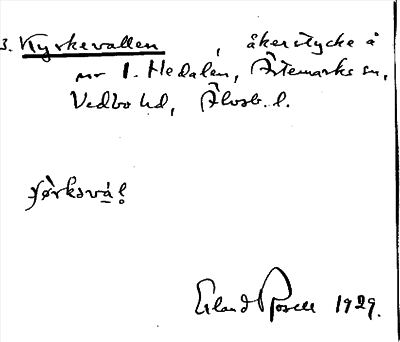 3. Kyrkevallen, åkerstycke å
nr 1. Hedalen, Ärtemarks sn,
Vedbo hd, Älvsb. l.
Erland Rosell 1929.